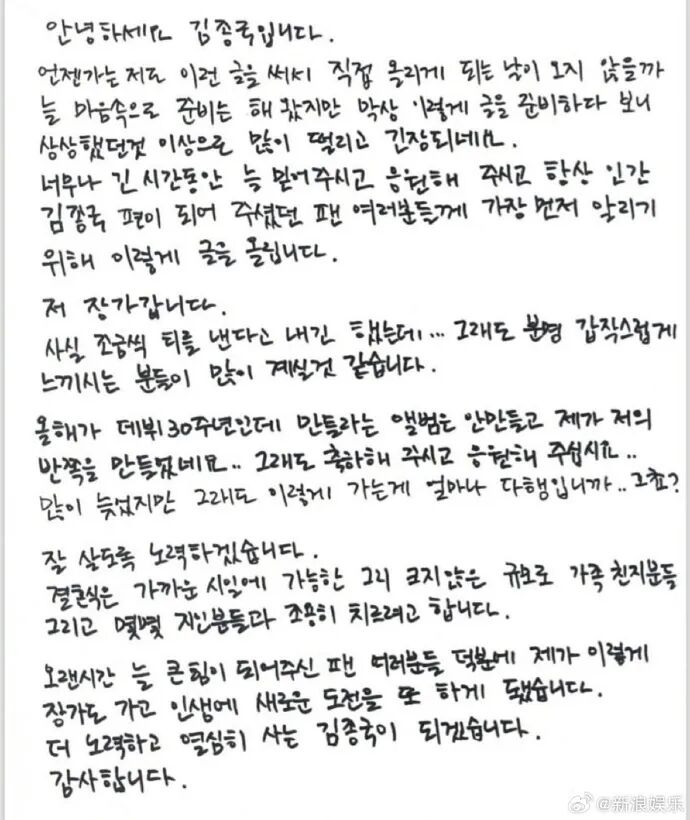 안녕하세요 김종국입니다.
언젠가는 저도 이런 글을 써서 직접 올리게 되는 날이 오지 않을까
늘 마음속으로 준비는 해 왔지만 막상 이렇게 글을 준비하다 보니
상상했던것 이상으로 많이 떨리고 긴장되네요.
너무나 긴 시간동안 늘 믿어주시고 응원해 주시고 항상 인간
김종국 편이 되어 주셨던 팬 여러분들께 가장 먼저 알리기
위해 이렇게 글을 올립니다.
저 장가갑니다.
사실 조금씩 티를 낸다고 내긴 했는데... 그래도 분명 갑작스럽게
느끼시는 분들이 많이 계실것 같습니다.
올해가 데뷔30주년인데 만들라는 앨범은 안만들고 제가 저의
반쪽을 만들었네요.. 그래도 축하해 주시고 응원해 주십시요..
많이 늦었지만 그래도 이렇게 가는게 얼마나 다행입니까.. 그쵸?
잘 살도록 노력하겠습니다.
결혼식은 가까운 시일에 가능한 그리 크지않은 규모로 가족 친지분들
그리고 몇몇 지인분들과 조용히 치르려고 합니다.
오랜시간 늘 큰힘이 되어주신 팬 여러분들 덕분에 제가 이렇게
장가도 가고 인생에 새로운 도전을 또 하게 됐습니다.
더 노력하고 열심히 사는 김종국이 되겠습니다.
감사합니다.
@新浪娱乐